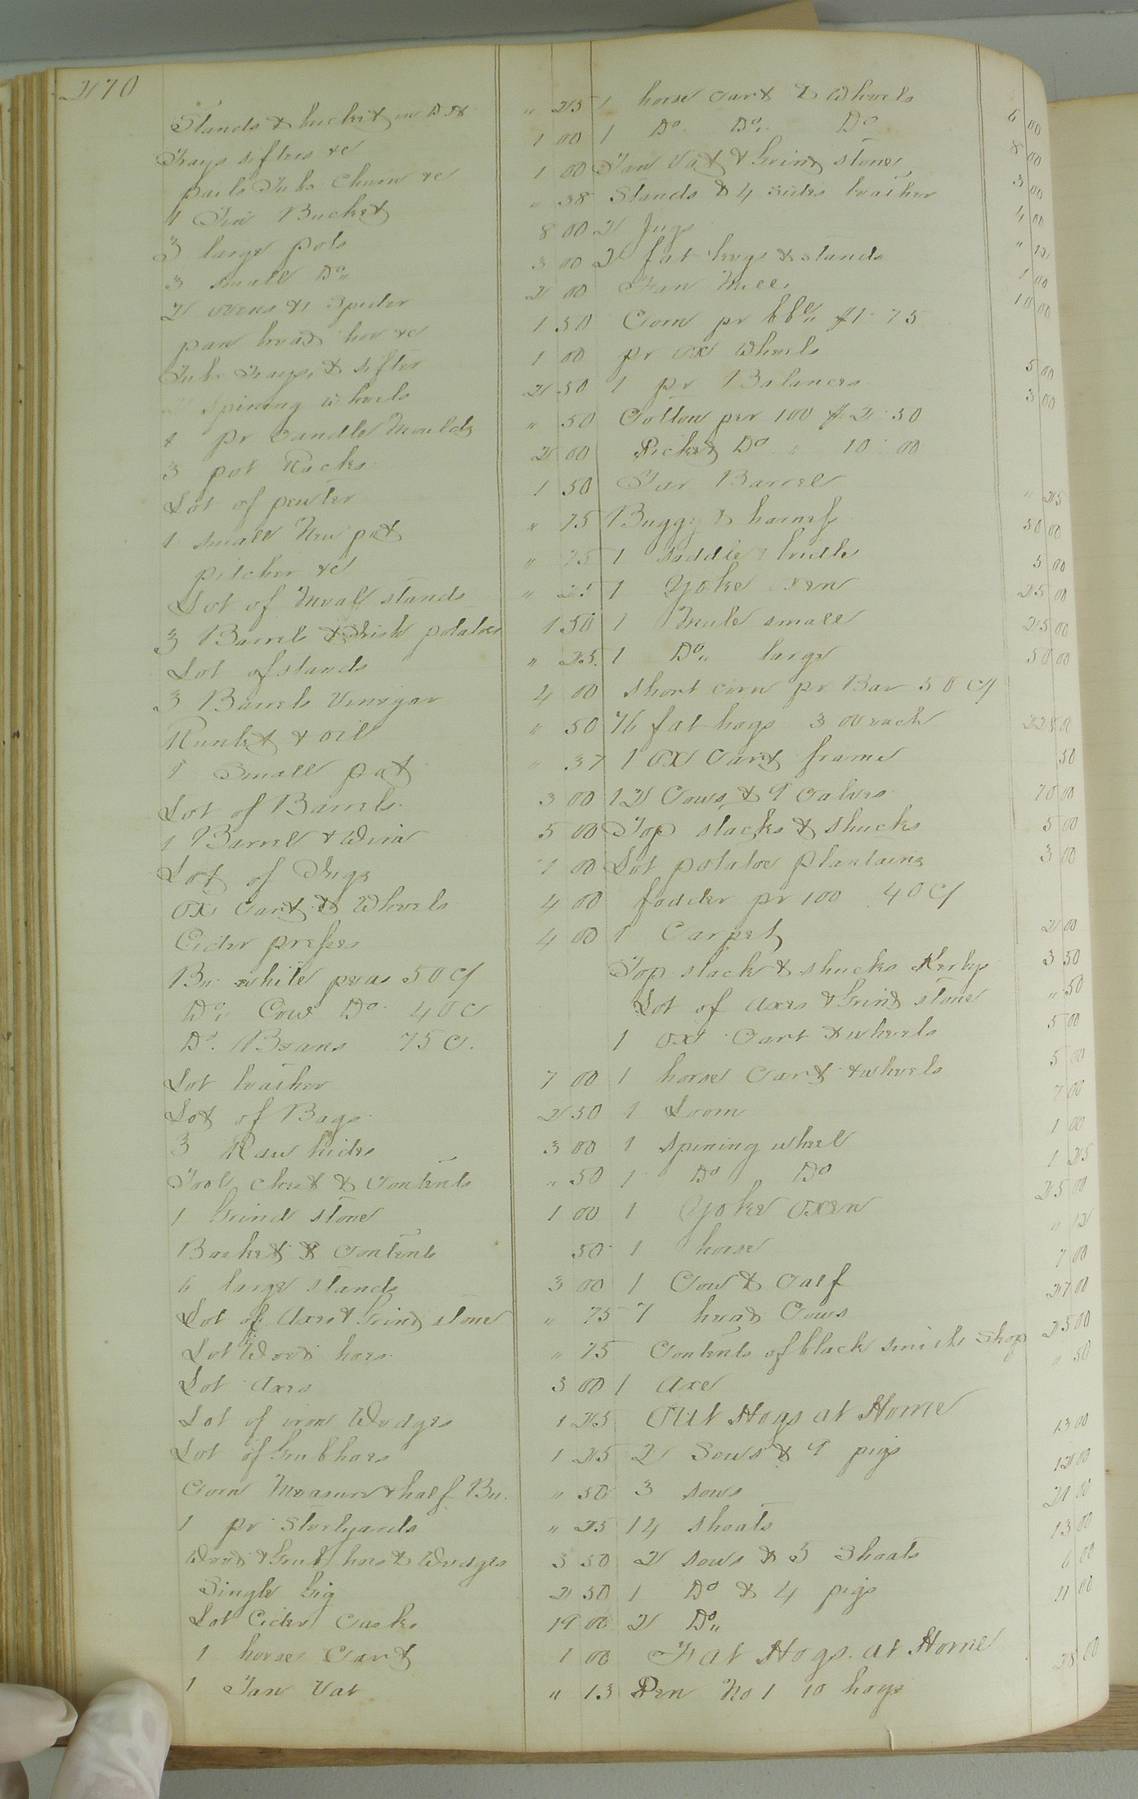 270
Stands & bucket &c " 25
Trays sifters &c 1 00
pails Tubs Churn &c 1 00
1 Tin Bucket " 38
3 large pots 8 00
3 small Do 3 00
2 ovens & 1 Spider 2 00
pan bread hoe &c 1 50
Tubs Trays, & sifter 1 00
Spining wheels 2 50
1 pr Candle Moulds " 50
3 pot Racks 2 00
Lot of pewter 1 50
1 small pot " 75
pitcher &c " 75
Lot of Meal stands " 25
3 Barrels & Irish potatoes 1 50
Lot of stands " 25
3 Barrels Vinegar 4 00
Runlet & oil " 50
1 Small pot " 37
Lot of Barrels 3 00
1 Barrel & Wine 5 00
Lot of Jugs 1 00
Ox Cart & Wheels 4 00
Cider presses 4 00
Bu white peas 50 c/
Do Cow Do 40 c
Do Beans 75 c.
Lot leather 7 00
Lot of Bags 2 50
3 Raw hides 3 00
Tool chest & Contents " 50
1 Grind stone 1 00
Basket & Contents 50
6 large stands 3 00
Lot of Axes & Grind stone " 75
Lot Weed hoes " 75
Lot Axes 3 00
Lot of iron Wedges 1 25
Lot of Grub hoes 1 25
Corn Measure & half Bu. " 50
1 pr Sterlyards " 25
Weed & Grub hoes & Wedges 3 50
Single Gig 2 50
Lot Cider Casks 19 00
1 horse Cart 1 00
1 Tan Vat " 13
1 horse Cart & Wheels 6 00
1 Do Do Do 8 00
Tan Vat & Grind stone 3 00
Stands & 4 sides leather 4 00
2 Jugs " 12
2 fat kegs & stands 1 00
Fan Mill 10 00
Corn pr bbl $1 75
pr ox Wheels 5 00
1 pr Balances 3 00
Cotton per 100 $2 50
Picked Do " 10 00
Tar Barrel " 25
1 Buggy & harness 50 00
1 saddle & bridle 5 00
1 Yoke oxen 25 00
1 Mule small 25 00
1 Do large 50 00
Short corn pr Bar 50 c/
76 fat hogs 3 00 each 228 00
1 Ox Cart frame 50
12 Cows & 9 Calves 70 00
Top stacks & Shucks 5 00
Lot potatoe Plantains 3 00
fodder pr 100 40 c/
1 Carpet 2 00
Top stack & shucks 3 50
Lot of Axes & Grind stone " 50
1 ox Cart & wheels 5 00
1 horse Cart & wheels 5 00
1 Loom 7 00
1 Spining wheel 1 00
1 Do Do 1 25
1 Yoke Oxen 25 00
1 horse " 12
1 Cow & Calf 7 00
7 head Cows 27 00
Contents of black smiths Shop 25 00
1 Axe " 50
Out Hogs at Home
2 Sows & 9 pigs 13 00
3 sows 12 00
14 shoats 21 00
2 sows & 3 Shoats 13 00
1 Do & 4 pigs 6 00
2 Do 11 00
Fat Hogs at Home
Pen No 1 10 hogs 28 00